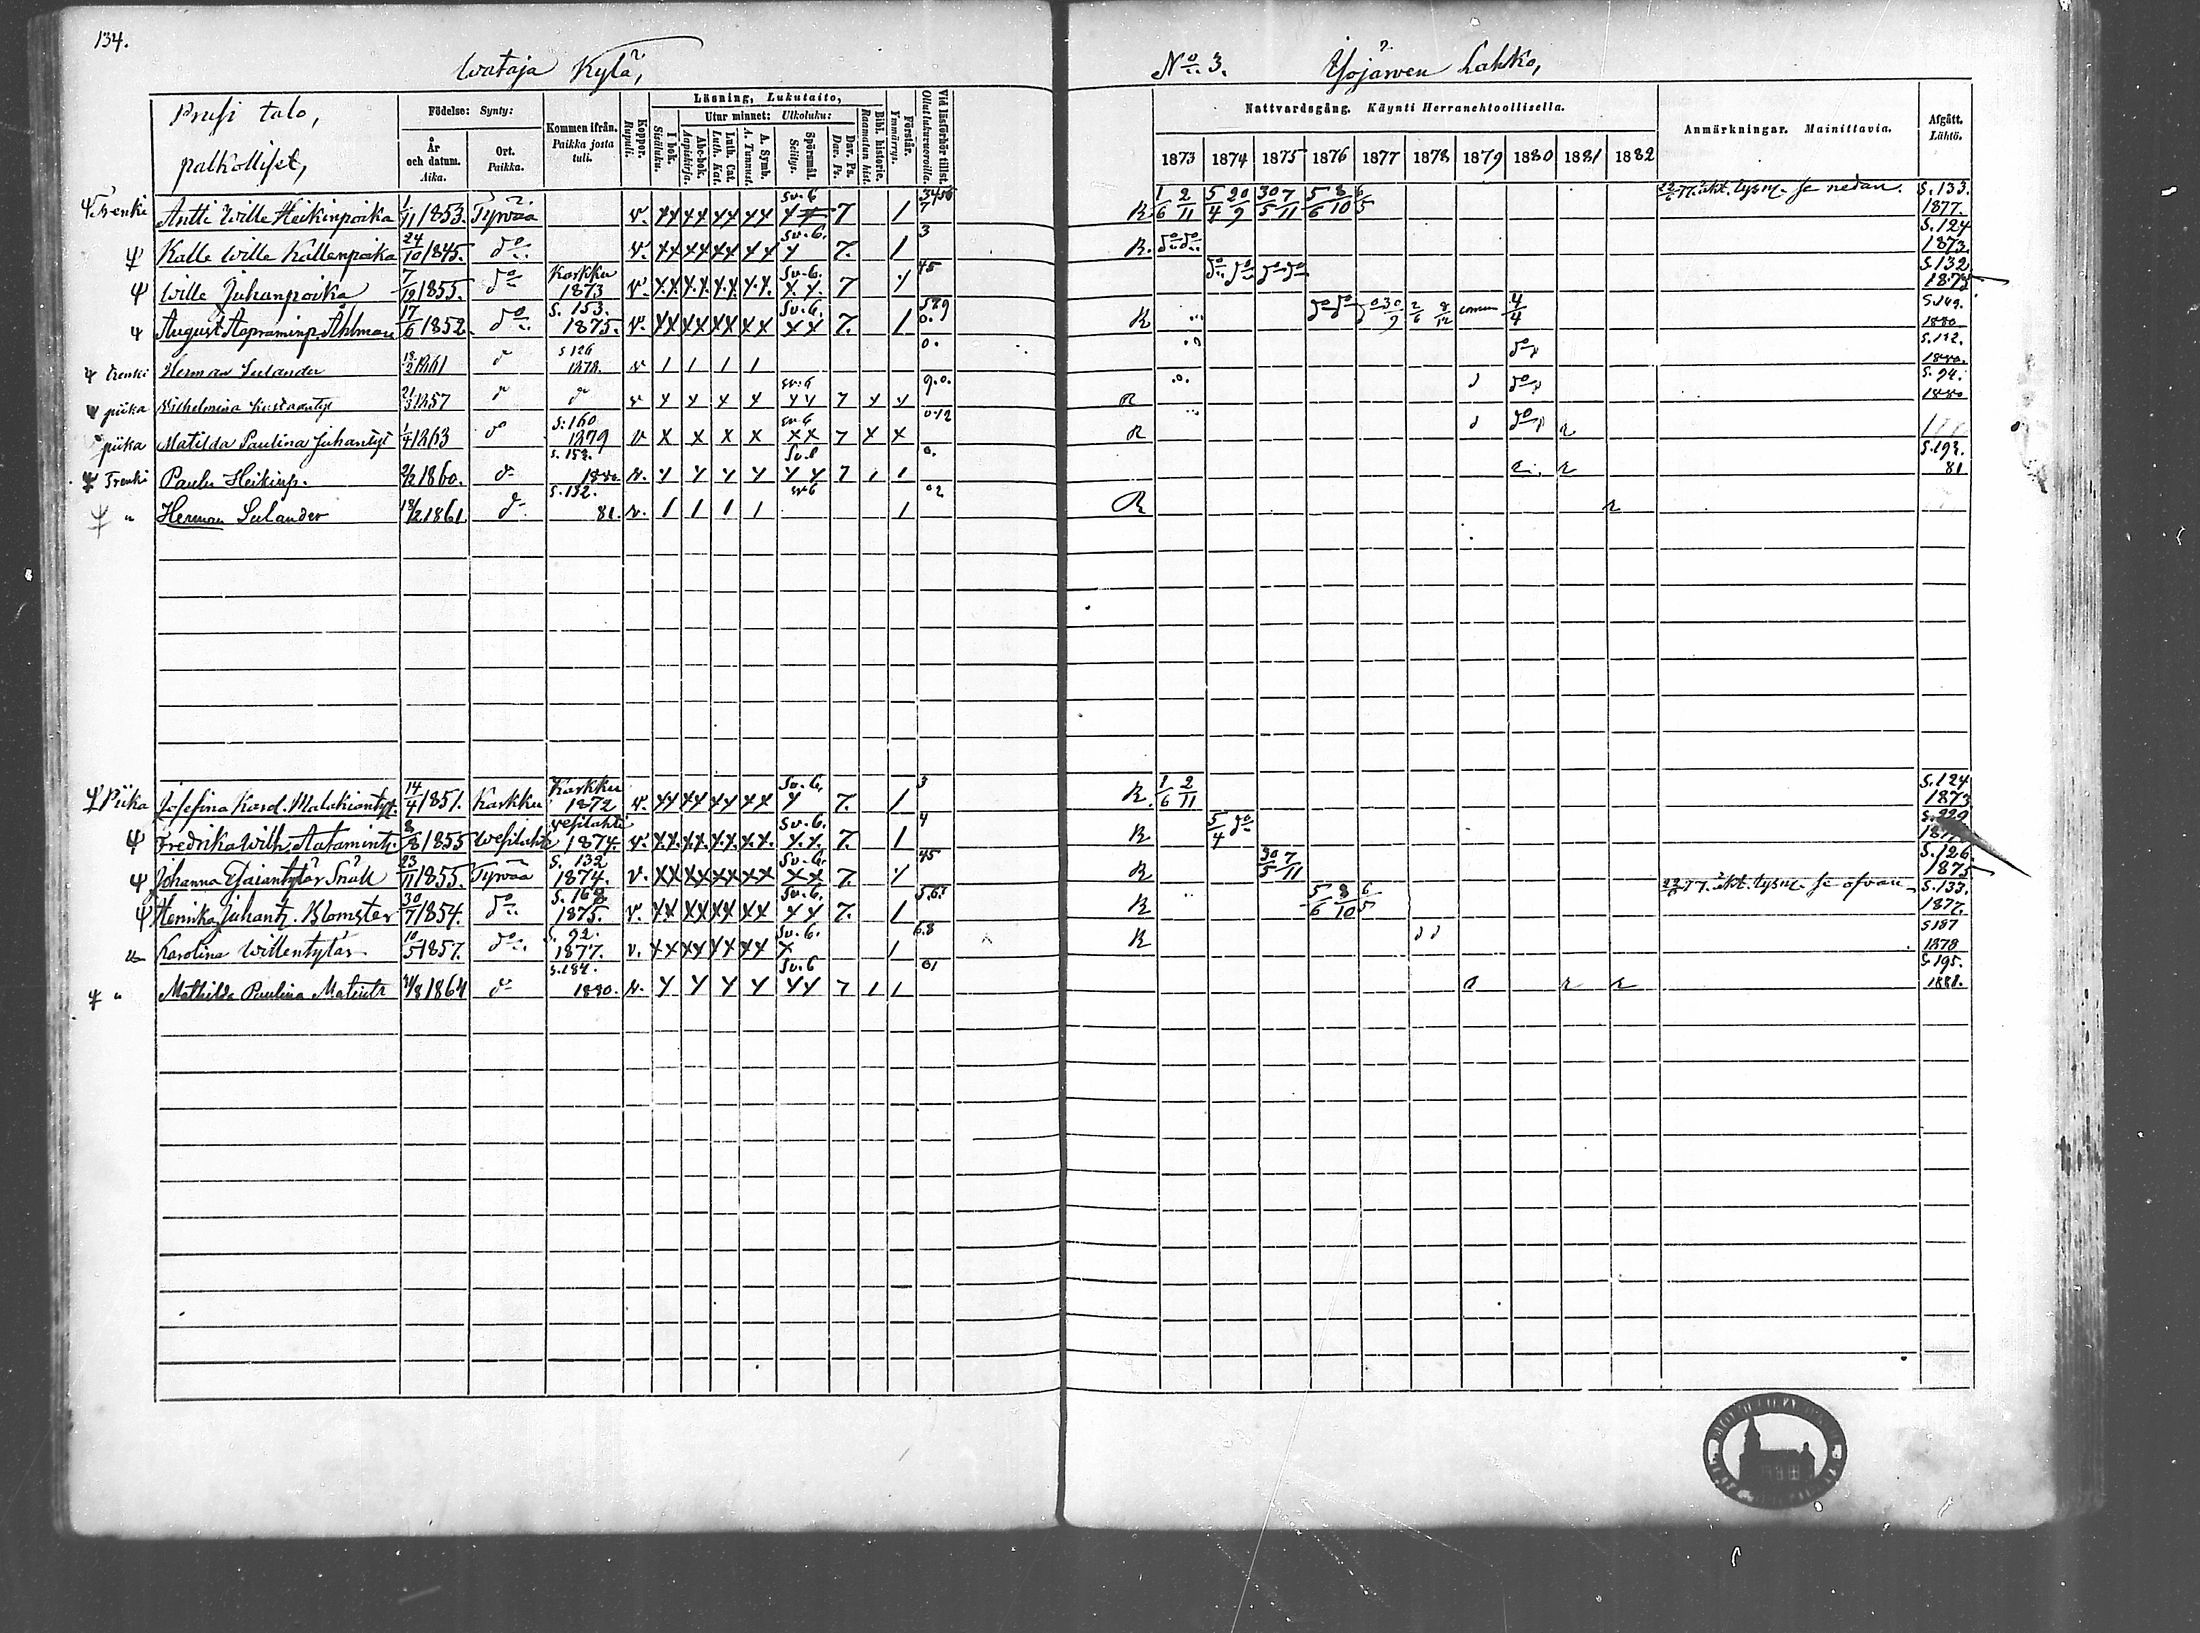 134.
Wataja Kylä,
No 3.
Yöjärwen Lahko,
Prusi talo,
palkolliset,
Födelse: Synty:
År och datum. Aika.
Ort. Paikka.
Kommen ifrån. Paikka josta tuli.
Koppor. Rupuli.
Läsning, Lukutaito,
I bok. Sisäluku.
Utur minnet: Ulkoluku:
Abc-bok. Aapiskirja.
Luth. Cat. Luth. Kat.
A. Symb. A. Tunnust.
Spörsmål. Selitys.
Dav. Ps. Dav. Ps.
Bibl. historie. Raamatun hist.
Förstår. Ymmärrys.
Vid läsförhör tillst. Ollut lukuvuoroilla.
Nattvardsgång. Käynti Herranehtoollisella.
1873 1874 1875 1876 1877 1878 1879 1880 1881 1882
Anmärkningar. Mainittavia.
Afgått. Lähtö.
Trenki Antti Wille Heikinpoika 1/11 1853. Tyrwää v. Sv. 6 7 R 1/6 2/11 5/4 20/9 30/5 7/11 5/6 8/10 6/5 se nedan. S. 133. 1877.
Kalle Wille Kallenpoika 24/10 1845. do v. Sv. 6. 7. 3 R. do do S. 124 1873
Wille Juhanpoika 7/12 1855. do Karkku 1873 v. Sv. 6. 7 45 do do do do S. 132 1875
August Aapraminp. Ahlman 17/6 1852. do S. 153. 1875. v. Sv. 6. 7. R do do 4/4 1880
trenki Herman Selander 18/2 1861 d S 126 1878. v 0. do 1880.
piika Wilhelmina Kustaantyt 21/3 1857 d d v sv. 6 7 9.0. R d do S. 94. 1880
piika Matilda Paulina Juhantyt 1/4 1863 do S. 160 1879 v sv 6 7 0.12 R d do r
Trenki Paulu Heikinp. 2/2 1860. d S. 153. 1880 v. Sv. 6 7 0. r S. 192. 81
" Herman Selander 18/2 1861 d S. 132. 81. v. sv 6 02 R r
Piika Josefina Karol. Malakiantyt. 14/4 1851. Karkku Karkku 1872 v. Sv. 6. 7. 3 R. 1/6 2/11 S. 124 1873
Fredrika Wilh. Aatamint. 8/8 1855 Wesilahti Wesilahti 1874. v. Sv. 6. 7. 4 R 5/4 do
Johanna Esaiantytär Snäll 23/11 1855. Tyrwää S. 132 1874. v. Sv. 6. 7. 45 R 30/5 7/11 S. 126. 1875
Henrika Juhant. Blomster 30/7 1854. do S. 168 1875. v. Sv. 6. 7. 5.6. R 5/6 8/10 6/5 se ofvan S. 133. 1877.
Karolina Willentytär 10/5 1857. do S. 92. 1877. v. Sv. 6. 6.8 R d d S 187 1878
" Mathilda Paulina Matint. 21/8 1864 d S. 184. 1880. v. Sv. 6 7 01 d r r S. 195. 1881.